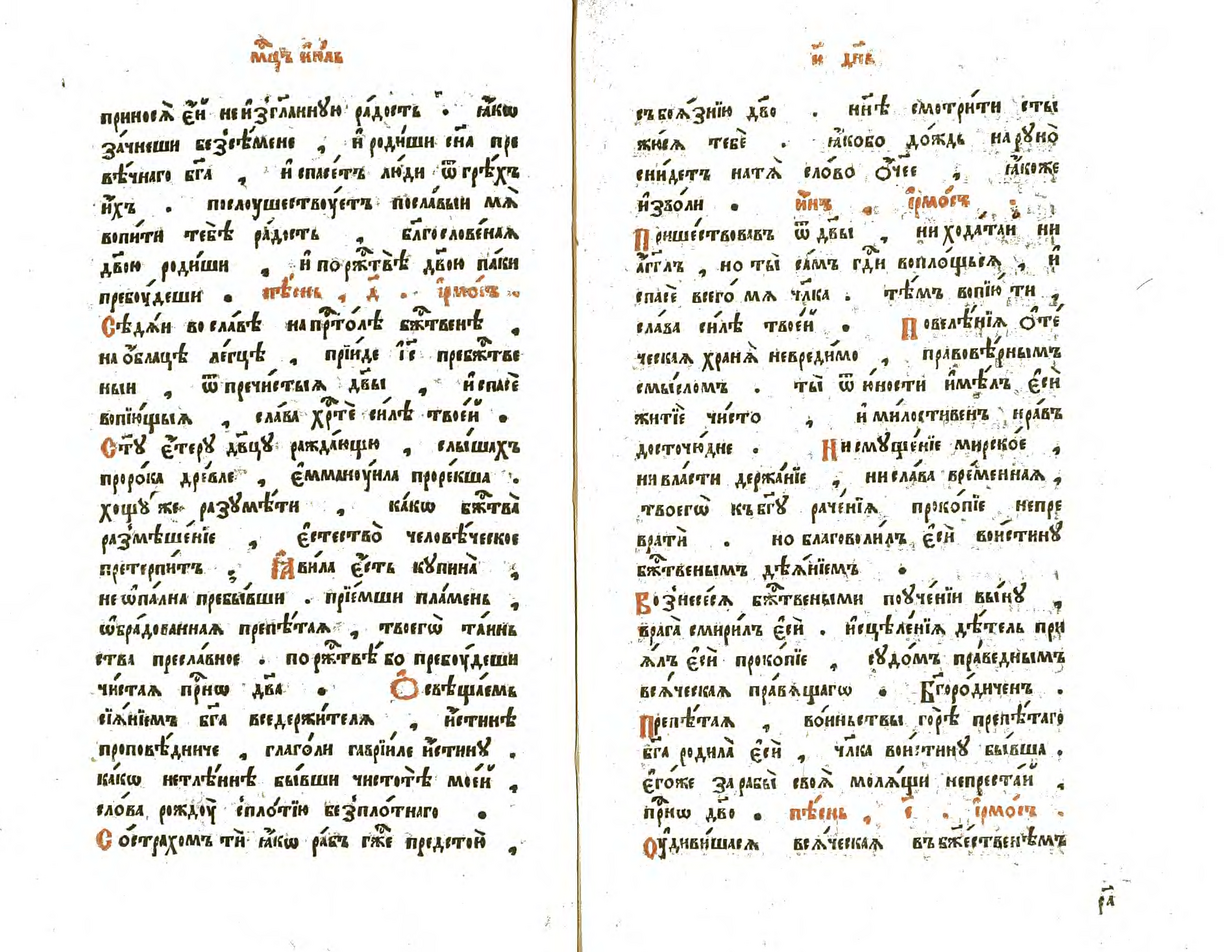 мⷭ҇цъ ію́ль
приносѧ̀ є҆и́ неи҆з̾гла́нную ра́дость . ꙗ҆́кѡ
зачне́ши без̾сѣ́мене , и҆ роди́ши сн҃а пре
вѣ́чнаго бг҃а , и҆ спасе́тъ лю́ди ѿ грѣ́хъ
и҆́хъ . послоу́шествоуетъ посла́выи мѧ̀
вопи́ти тебѣ̀ ра́дость , бл҃гослове́наѧ
дв҃ою роди́ши , и҆ по ржⷭ҇твѣ̀ дв҃ою па́ки
пребоу́деши . пѣ́снь , д҃ . і҆рмо́съ .
Сѣдѧ́и во сла́вѣ на прⷭ҇то́лѣ бжⷭ҇твенѣ ,
на ѻ҆́блацѣ ле́гцѣ , прїи́де і҆с҃ пребжⷭ҇тве
ныи , ѿ пречи́стыѧ дв҃ы , и҆ спасѐ
вопїю́щыѧ , сла́ва хрⷭ҇тѐ си́лѣ твое́й .
Ст҃у є҆те́ру дв҃цу ражда́ющю , слы́шахъ
проро́ка дре́вле , є҆мманоу́ила проре́кша .
хощу́ же разумѣ́ти , ка́кѡ бжⷭ҇тва̀
размѣше́нїе , є҆стество̀ человѣ́ческое
претерпи́тъ . Ꙗ҆ви́ла є҆́сть купина̀ ,
не ѡ҆па́лна пребы́вши . прїе́мши пла́мень ,
ѡ҆бра́дованнаѧ препѣ́таѧ , твоегѡ̀ та́инь
ства пресла́вное . по ржⷭ҇твѣ́ бо пребоу́деши
чи́стаѧ прⷭ҇нѡ дв҃а . Ѻ҆свѣща́емь
сїѧ́нїемъ бг҃а вседержи́телѧ , и҆́стинѣ
проповѣ́дниче , глаго́ли гаврїи́ле и҆́стину .
ка́кѡ нетлѣ́ннѣ бы́вши чистотѣ̀ мое́й ,
сло́ва рождоу̀ с̾пло́тїю без̾пло́тнаго .
Со́ страхомъ тѝ ꙗ҆́кѡ ра́бъ гж҃е предстою̀ ,
и҃ дн҃ь
съ боѧ́знїю дв҃о . нн҃ѣ смотри́ти сты
жю́сѧ тебѐ . ꙗ҆́кобо до́ждь на руно̀
сни́детъ на тѧ̀ сло́во ѻ҆́чее , ꙗ҆́коже
и҆зво́ли . и҆́нъ , і҆рмо́съ .
Прише́ствовавъ ѿ дв҃ы , ни хода́таи ни
а҆́гг҃лъ , но ты̀ са́мъ гд҃и вопло́щьсѧ , и҆
спасѐ всего́ мѧ чл҃ка . тѣ́мъ вопїю́ ти ,
сла́ва си́лѣ твое́й . Повелѣ́нїѧ ѻ҆те́
ческаѧ хранѧ̀ невреди́мо , правовѣ́рнымъ
смы́сломъ . ты̀ ѿ ю҆́ности и҆мѣ́лъ є҆сѝ
житїѐ чи́сто , и҆ ми́лостивенъ нра́въ
досточю́дне . Ни смуще́нїе мирско́е ,
ни вла́сти держа́нїе , ни сла́ва вре́меннаѧ ,
твоегѡ̀ къ бг҃у раче́нїѧ проко́пїе непре
вратѝ . но благоволи́лъ є҆сѝ вои́стину
бжⷭ҇твенымъ дѣѧ́нїемъ .
Вознесе́сѧ бжⷭ҇твеными поуче́нїи вы́ну ,
врага̀ смири́лъ є҆сѝ . и҆сцѣле́нїѧ дѣ́тель при
ѧ́лъ є҆сѝ проко́пїе , судо́мъ пра́веднымъ
всѧ́ческаѧ пра́вѧщагѡ . Бг҃оро́диченъ .
Препѣ́таѧ , во́иньствы го́рѣ препѣ́таго
бг҃а родила̀ є҆сѝ , чл҃ка вои́стину бы́вша .
є҆го́же за рабы̀ своѧ̀ молѧ́щи непреста́й ,
прⷭ҇нѡ дв҃о . пѣ́снь , є҃ . і҆рмо́съ .
Оу҆диви́шасѧ всѧ́ческаѧ въ бжⷭ҇ественѣ́мъ
р҃а